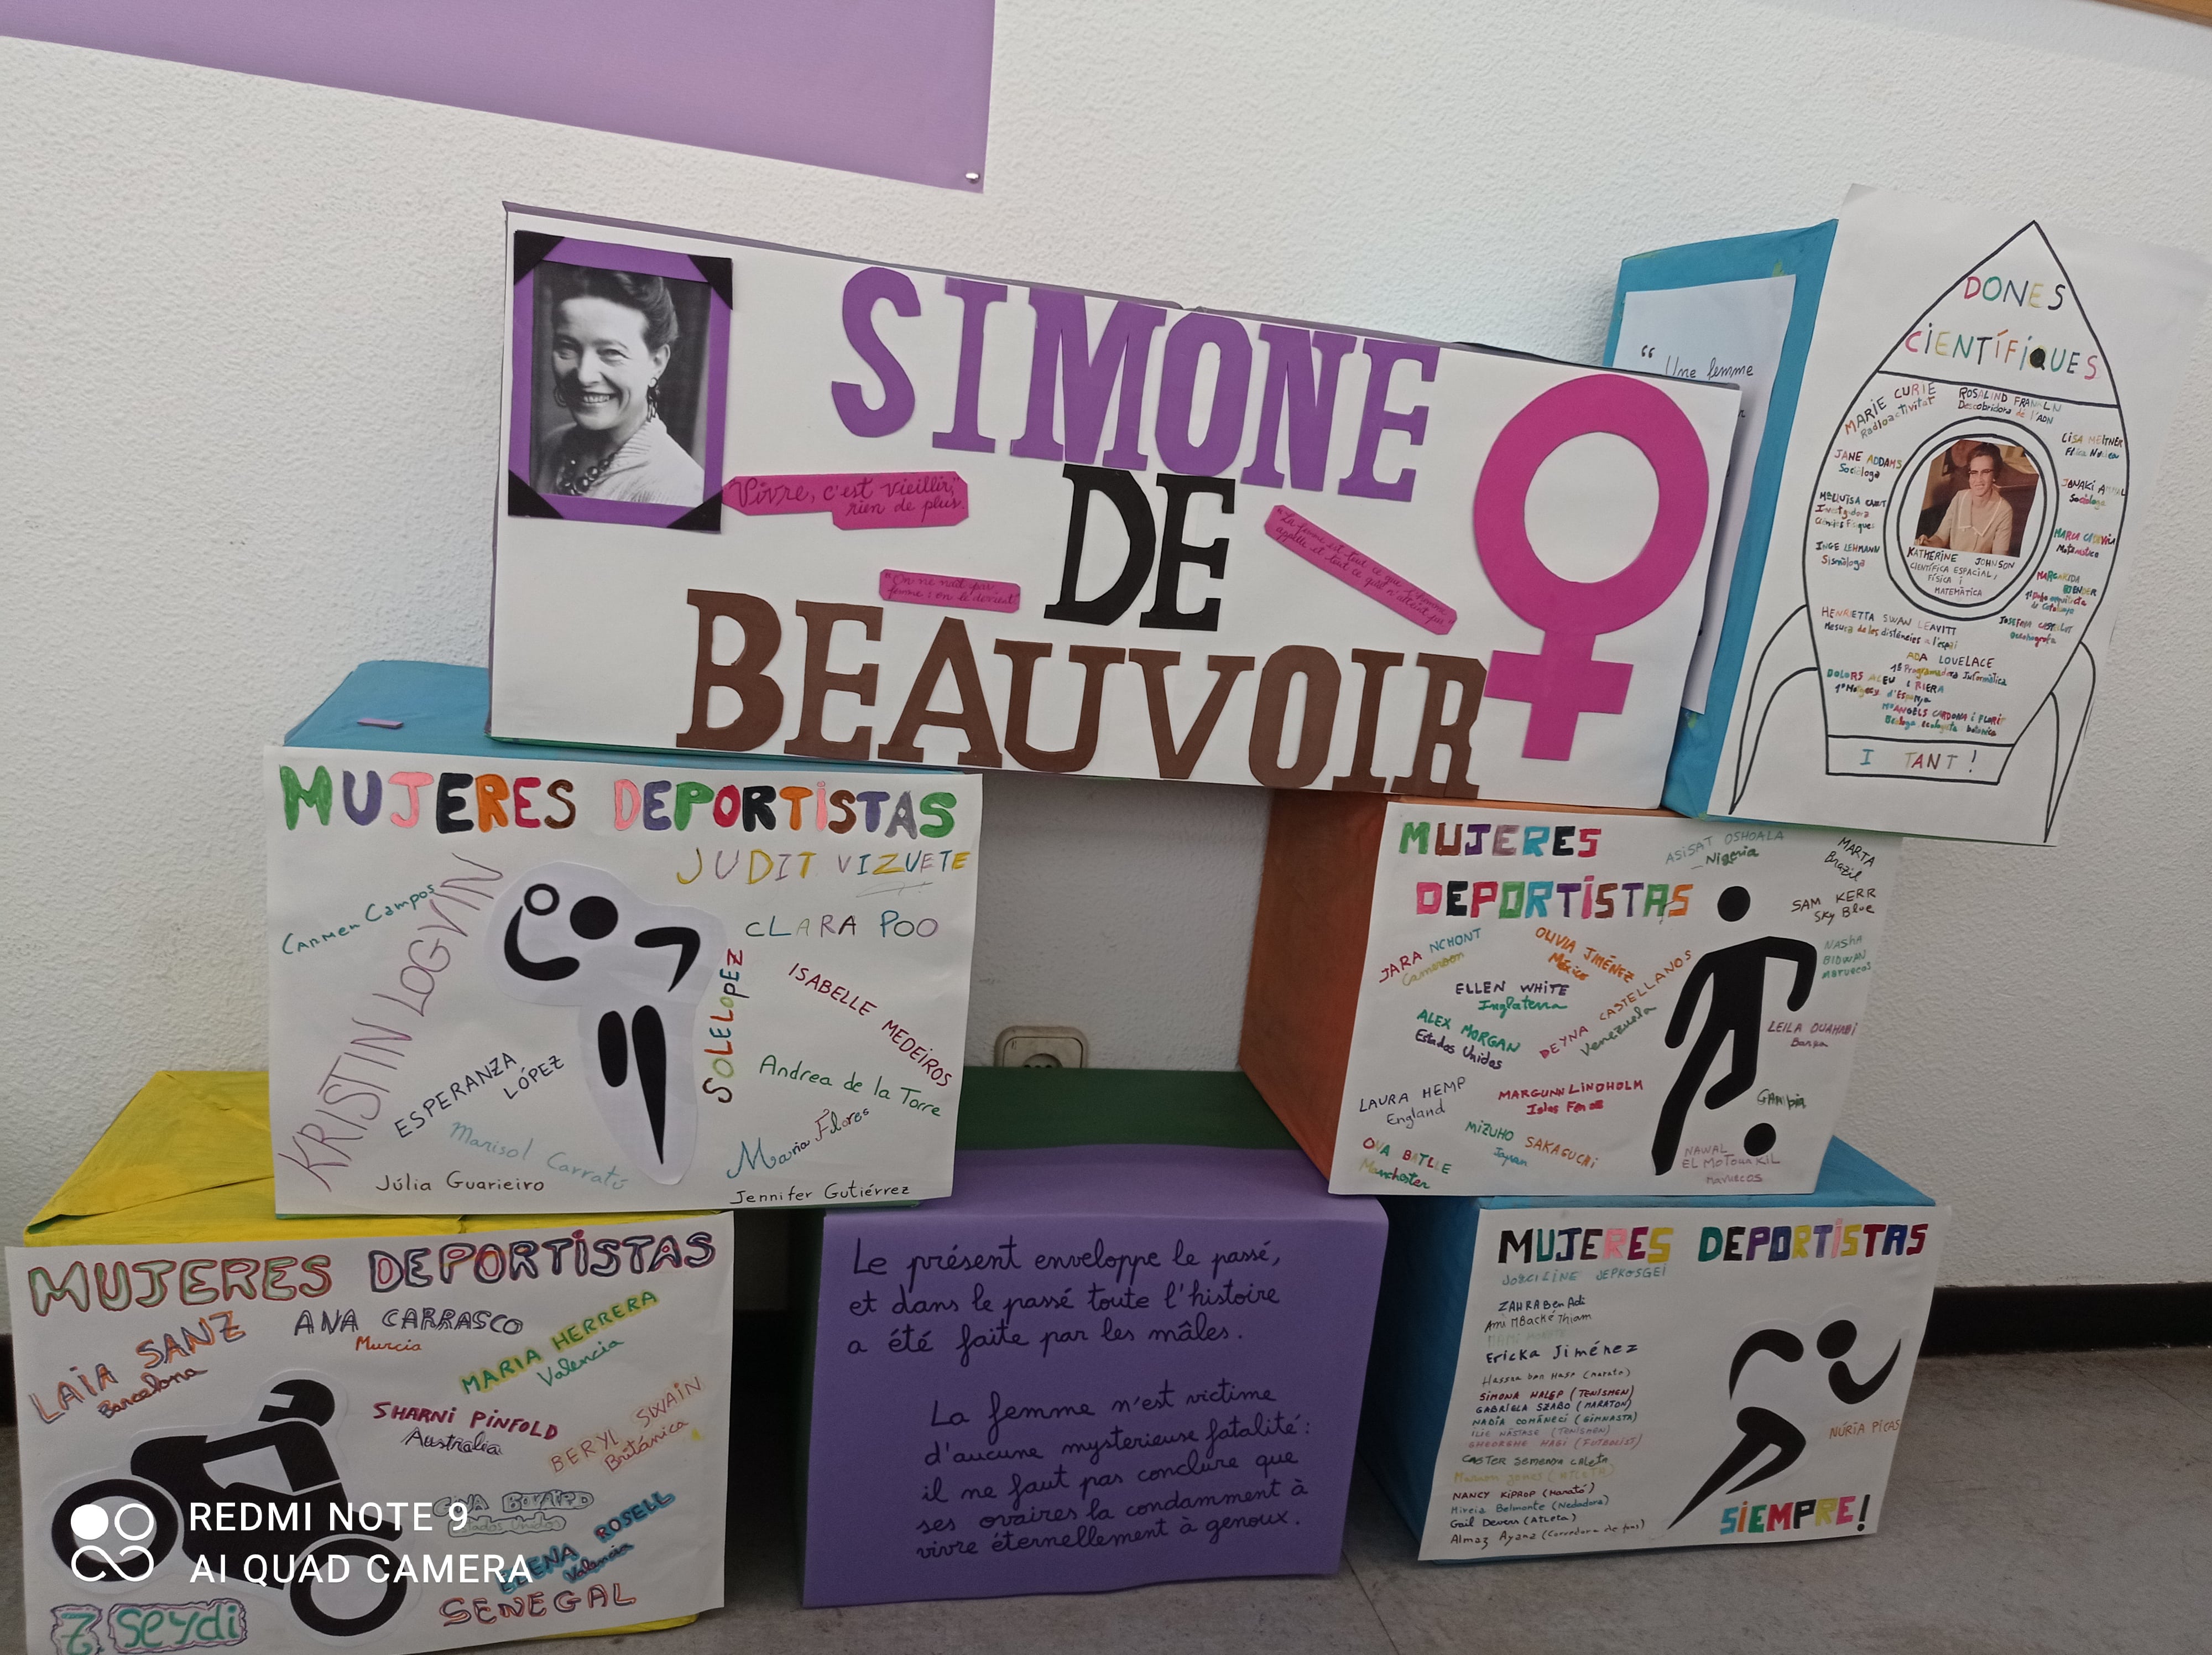 SIMONE
DE
BEAUVOIR
Vivre, c'est vieillir,
rien de plus.
"On ne naît pas
femme: on le devient"
"La femme est tout ce que l'homme
appelle et tout ce qu'il n'atteint pas"
“ Une femme
DONES
CIENTÍFIQUES
MARIE CURIE
Radioactivitat
ROSALIND FRANKLIN
Descobridora de l'ADN
LISA MEITNER
JANE ADDAMS
Sociòloga
INGE LEHMANN
Sismòloga
KATHERINE JOHNSON
CIENTÍFICA ESPACIAL,
FÍSICA I
MATEMÀTICA
HENRIETTA SWAN LEAVITT
Mesura de les distàncies a l'espai
ADA LOVELACE
1ª Programadora Informàtica
DOLORS ALEU i RIERA
Mª ANGELS CARDONA i FLORIT
I TANT!
MUJERES DEPORTISTAS
JUDIT VIZUETE
Carmen Campos
KRISTIN LOGVIN
CLARA POO
SOLE LOPEZ
ISABELLE MEDEIROS
ESPERANZA
LÓPEZ
Andrea de la Torre
Marisol Carrató
Maria Flores
Júlia Guarieiro
Jennifer Gutiérrez
MUJERES
DEPORTISTAS
ASISAT OSHOALA
Nigeria
MARTA
Brazil
SAM KERR
Sky Blue
JARA NCHONT
Cameroon
OLIVIA JIMÉNEZ
México
NASHA
BIDWAN
Marruecos
ELLEN WHITE
Inglaterra
DEYNA CASTELLANOS
Venezuela
ALEX MORGAN
Estados Unidos
LEILA OUAHABI
Barça
LAURA HEMP
England
MARGUNN LINDHOLM
Gambia
MIZUHO SAKAGUCHI
Japan
ONA BATLLE
Manchester
NAWAL
EL MOTOUAKIL
MUJERES DEPORTISTAS
LAIA SANZ
Barcelona
ANA CARRASCO
Murcia
MARIA HERRERA
Valencia
SHARNI PINFOLD
Australia
BERYL SWAIN
Británica
Estados Unidos
ELENA ROSELL
Valencia
SENEGAL
Z Seydi
Le présent enveloppe le passé,
et dans le passé toute l'histoire
a été faite par les mâles.
La femme n'est victime
d'aucune mysterieuse fatalité:
il ne faut pas conclure que
ses ovaires la condamment à
vivre éternellement à genoux.
MUJERES DEPORTISTAS
JEPKOSGEI
ZAHRA Ben Adi
Ami MBacké Thiam
Ericka Jiménez
SIMONA HALEP (TENISMEN)
GABRIELA SZABO (MARATON)
NADIA COMĂNECI (GIMNASTA)
ILIE NĂSTASE (TENISMEN)
GHEORGHE HAGI (FUTBOLIST)
CASTER SEMENYA
Marion Jones
NANCY KIPROP (Marató)
Mireia Belmonte (Nedadora)
Gail Devers (Atleta)
Almaz Ayana (Corredora de fons)
NÚRIA PICAS
SIEMPRE!
REDMI NOTE 9
AI QUAD CAMERA